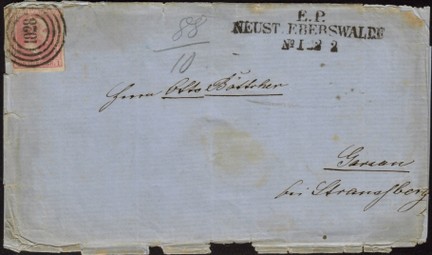 1028
88
10
E. P.
NEUST. EBERSWALDE
Herrn Otto Böttcher
Garzau
bei Strausberg